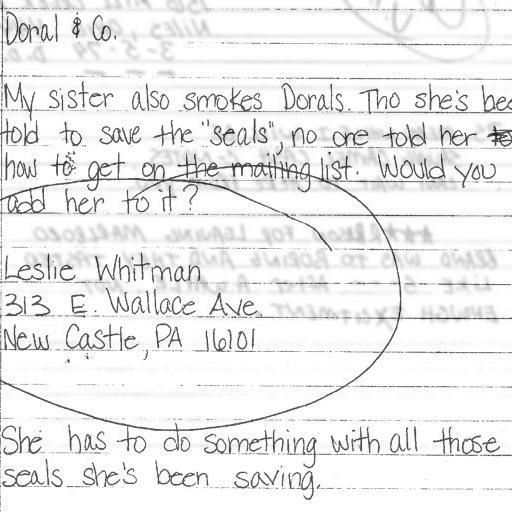 Doral & Co.
My sister also smokes Dorals. Tho she's bee
told to save the "seals", no one told her to
how to get on the mailing list. Would you
add her to it?
Leslie Whitman
313 E. Wallace Ave.
New Castle, PA 16101
She has to do something with all those
seals she's been saving.